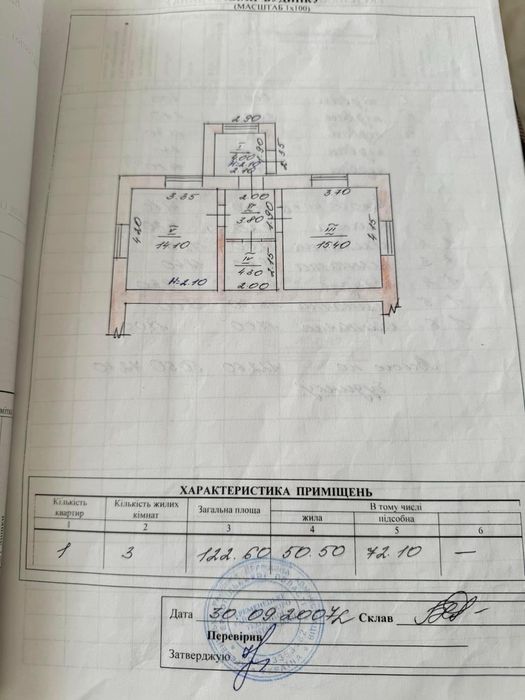 БУДИНКУ
(МАСШТАБ 1х100)
2.90
I
4.00
H=2.10
2.10
1.90
2.35
3.35
2.00
3.70
4.20
V
14.10
II
3.80
1.90
III
15.40
4.15
IV
4.30
2.15
H=2.10
2.00
ХАРАКТЕРИСТИКА ПРИМІЩЕНЬ
Кількість квартир
Кількість жилих кімнат
Загальна площа
В тому числі
жила
підсобна
1 2 3 4 5 6
1 3 122.60 50.50 72.10 —
Дата 30.09.2007р. Склав
Перевірив
Затверджую